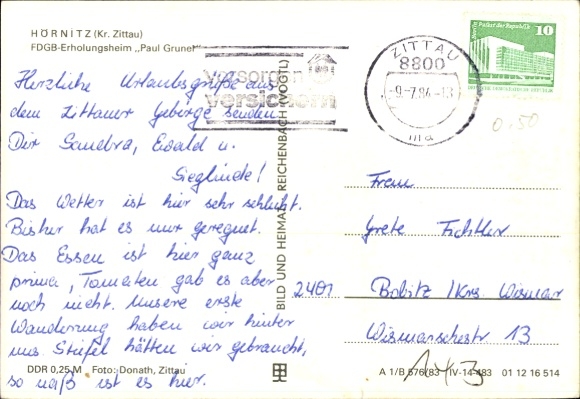 HÖRNITZ (Kr. Zittau)
FDGB-Erholungsheim „Paul Gruner"
Herzliche Urlaubsgrüße aus
dem Zittauer Gebirge senden
Dir Sandra, Ewald u.
Sieglinde!
Das Wetter ist hier sehr schlecht.
Bisher hat es nur geregnet.
Das Essen ist hier ganz
prima, Tomaten gab es aber
noch nicht. Unsere erste
Wanderung haben wir hinter
uns. Stiefel hätten wir gebraucht,
so naß ist es hier.
DDR 0,25 M Foto: Donath, Zittau
BILD UND HEIMAT REICHENBACH (VOGTL)
vorsorgen
versichern
ZITTAU
8800
-9.-7.84.-13
ma
Berlin, Palast der Republik
10
0.50
Frau
Grete
2401 Bobitz /Krs. Wismar
Wismarschestr 13
A 1/B 576/83 IV-14-483 01 12 16 514